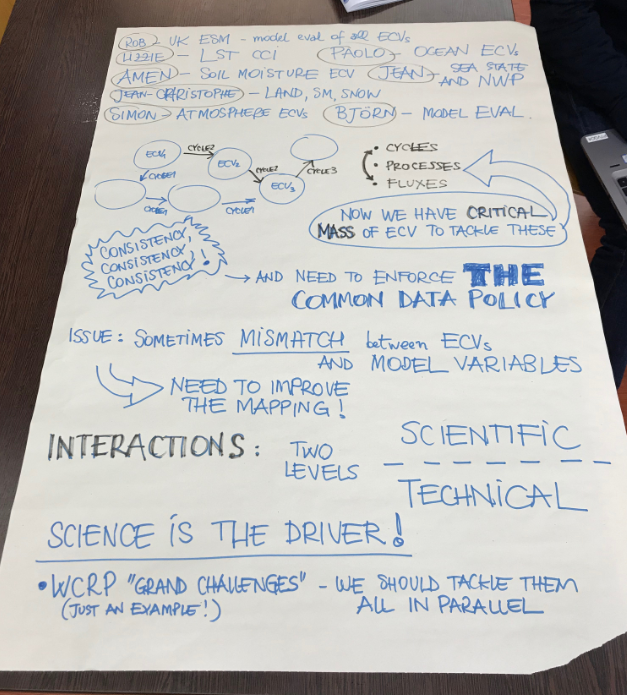 ROB - UK ESM - model eval of all ECVs
LIZZIE - LST CCI
PAOLO - OCEAN ECVs
AMEN - SOIL MOISTURE ECV
JEAN - SEA STATE AND NWP
JEAN-CHRISTOPHE - LAND, SM, SNOW
SIMON - ATMOSPHERE ECVs
BJÖRN - MODEL EVAL.
ECV1
CYCLE2
ECV2
CYCLE2
ECV3
CYCLE3
CYCLE1
CYCLE1
CYCLE1
• CYCLES
• PROCESSES
• FLUXES
NOW WE HAVE CRITICAL
MASS OF ECV TO TACKLE THESE
CONSISTENCY,
CONSISTENCY,
CONSISTENCY!
→ AND NEED TO ENFORCE THE
COMMON DATA POLICY
ISSUE: SOMETIMES MISMATCH between ECVs
AND MODEL VARIABLES
NEED TO IMPROVE
THE MAPPING!
INTERACTIONS: TWO
LEVELS
SCIENTIFIC
TECHNICAL
SCIENCE IS THE DRIVER!
• WCRP "GRAND CHALLENGES" - WE SHOULD TACKLE THEM
(JUST AN EXAMPLE!) ALL IN PARALLEL